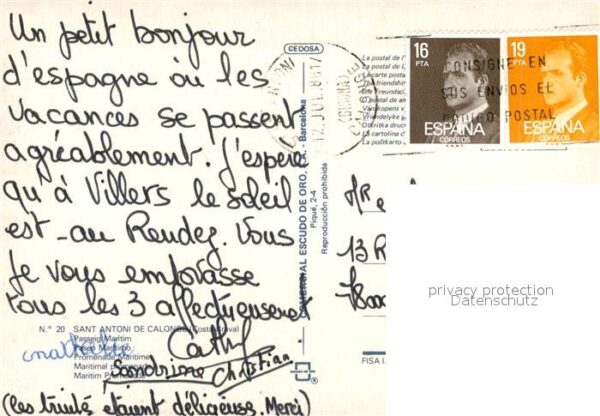 Un petit bonjour
d'espagne où les
vacances se passent
agréablement. J'espère
qu'à Villers le soleil
est -au Rendez. Vous
Je vous embrasse
tous les 3 affectueusement
Cathy
Sandrine Christian
(Les truités etaient déligeuses. Merci)
N.° 20 SANT ANTONI DE CALONGE (Costa Brava)
Passeig Marítim
Paseo Marítimo
Promenade Maritime
Maritimal promenade
Maritim Promenade
CEDOSA
COMERCIAL ESCUDO DE ORO, S.A. - Barcelona
Piqué, 2-4
Reproducción prohibida
La postal de l'
La postal de l
La carte postal
The friendship
Eine Freundsc
O postal de am
Vänskapens v
Vriendelijke g
La cartolina d'
La postkarto
16
PTA
ESPAÑA
CORREOS
19
PTA
ESPAÑA
CORREOS
CONSIGNE EN
SUS ENVIOS EL
CODIGO POSTAL
12 JUL
Mr e
13 R
FISA I.
privacy protection
Datenschutz